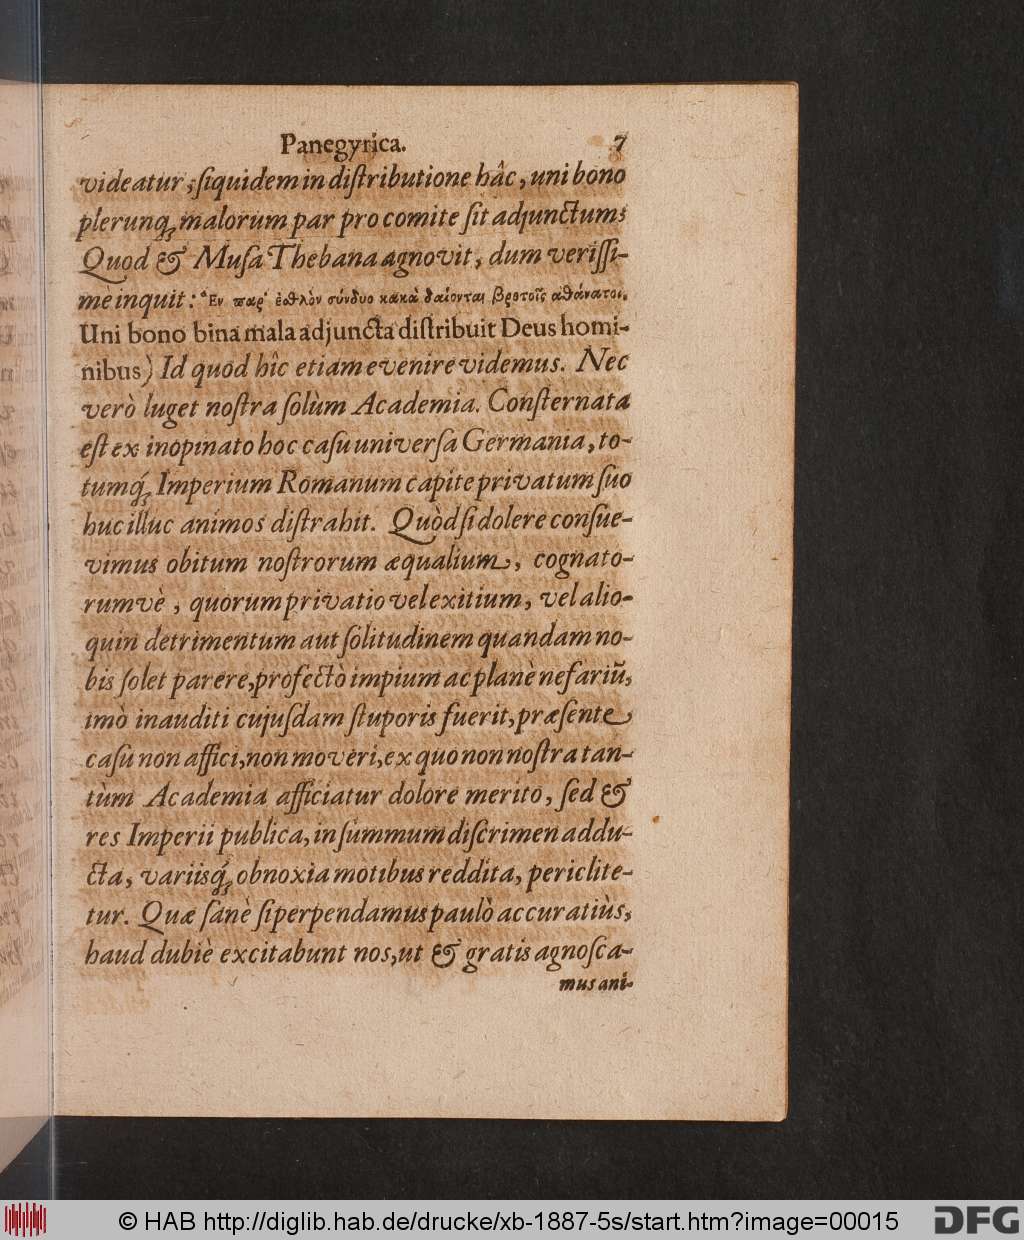 Panegyrica. 7
videatur; ſiquidem in diſtributione hâc, uni bono
plerunq; malorum par pro comite ſit adjunctum:
Quod & Muſa Thebana agnovit, dum veriſſi-
me inquit: Ἓν παρ' ἐσθλὸν σύνδυο κακὰ δαίονται βροτοῖς ἀθάνατοι.
Uni bono bina mala adjuncta diſtribuit Deus homi-
nibus) Id quod hîc etiam evenire videmus. Nec
verò luget noſtra ſolùm Academia. Conſternata
eſt ex inopinato hoc caſu univerſa Germania, to-
tumq́; Imperium Romanum capite privatum ſuo
huc illuc animos diſtrahit. Quòd ſi dolere conſue-
vimus obitum noſtrorum æqualium, cognato-
rumvè, quorum privatio vel exitium, vel alio-
quin detrimentum aut ſolitudinem quandam no-
bis ſolet parere, profectò impium ac planè nefariũ,
imò inauditi cujuſdam ſtuporis fuerit, præſente
caſu non affici, non moveri, ex quo non noſtra tan-
tùm Academia afficiatur dolore merito, ſed &
res Imperii publica, in ſummum diſcrimen addu-
cta, variisq́; obnoxia motibus reddita, periclite-
tur. Quæ ſanè ſi perpendamus paulò accuratiùs,
haud dubiè excitabunt nos, ut & gratis agnoſca-
mus ani-
© HAB http://diglib.hab.de/drucke/xb-1887-5s/start.htm?image=00015
DFG